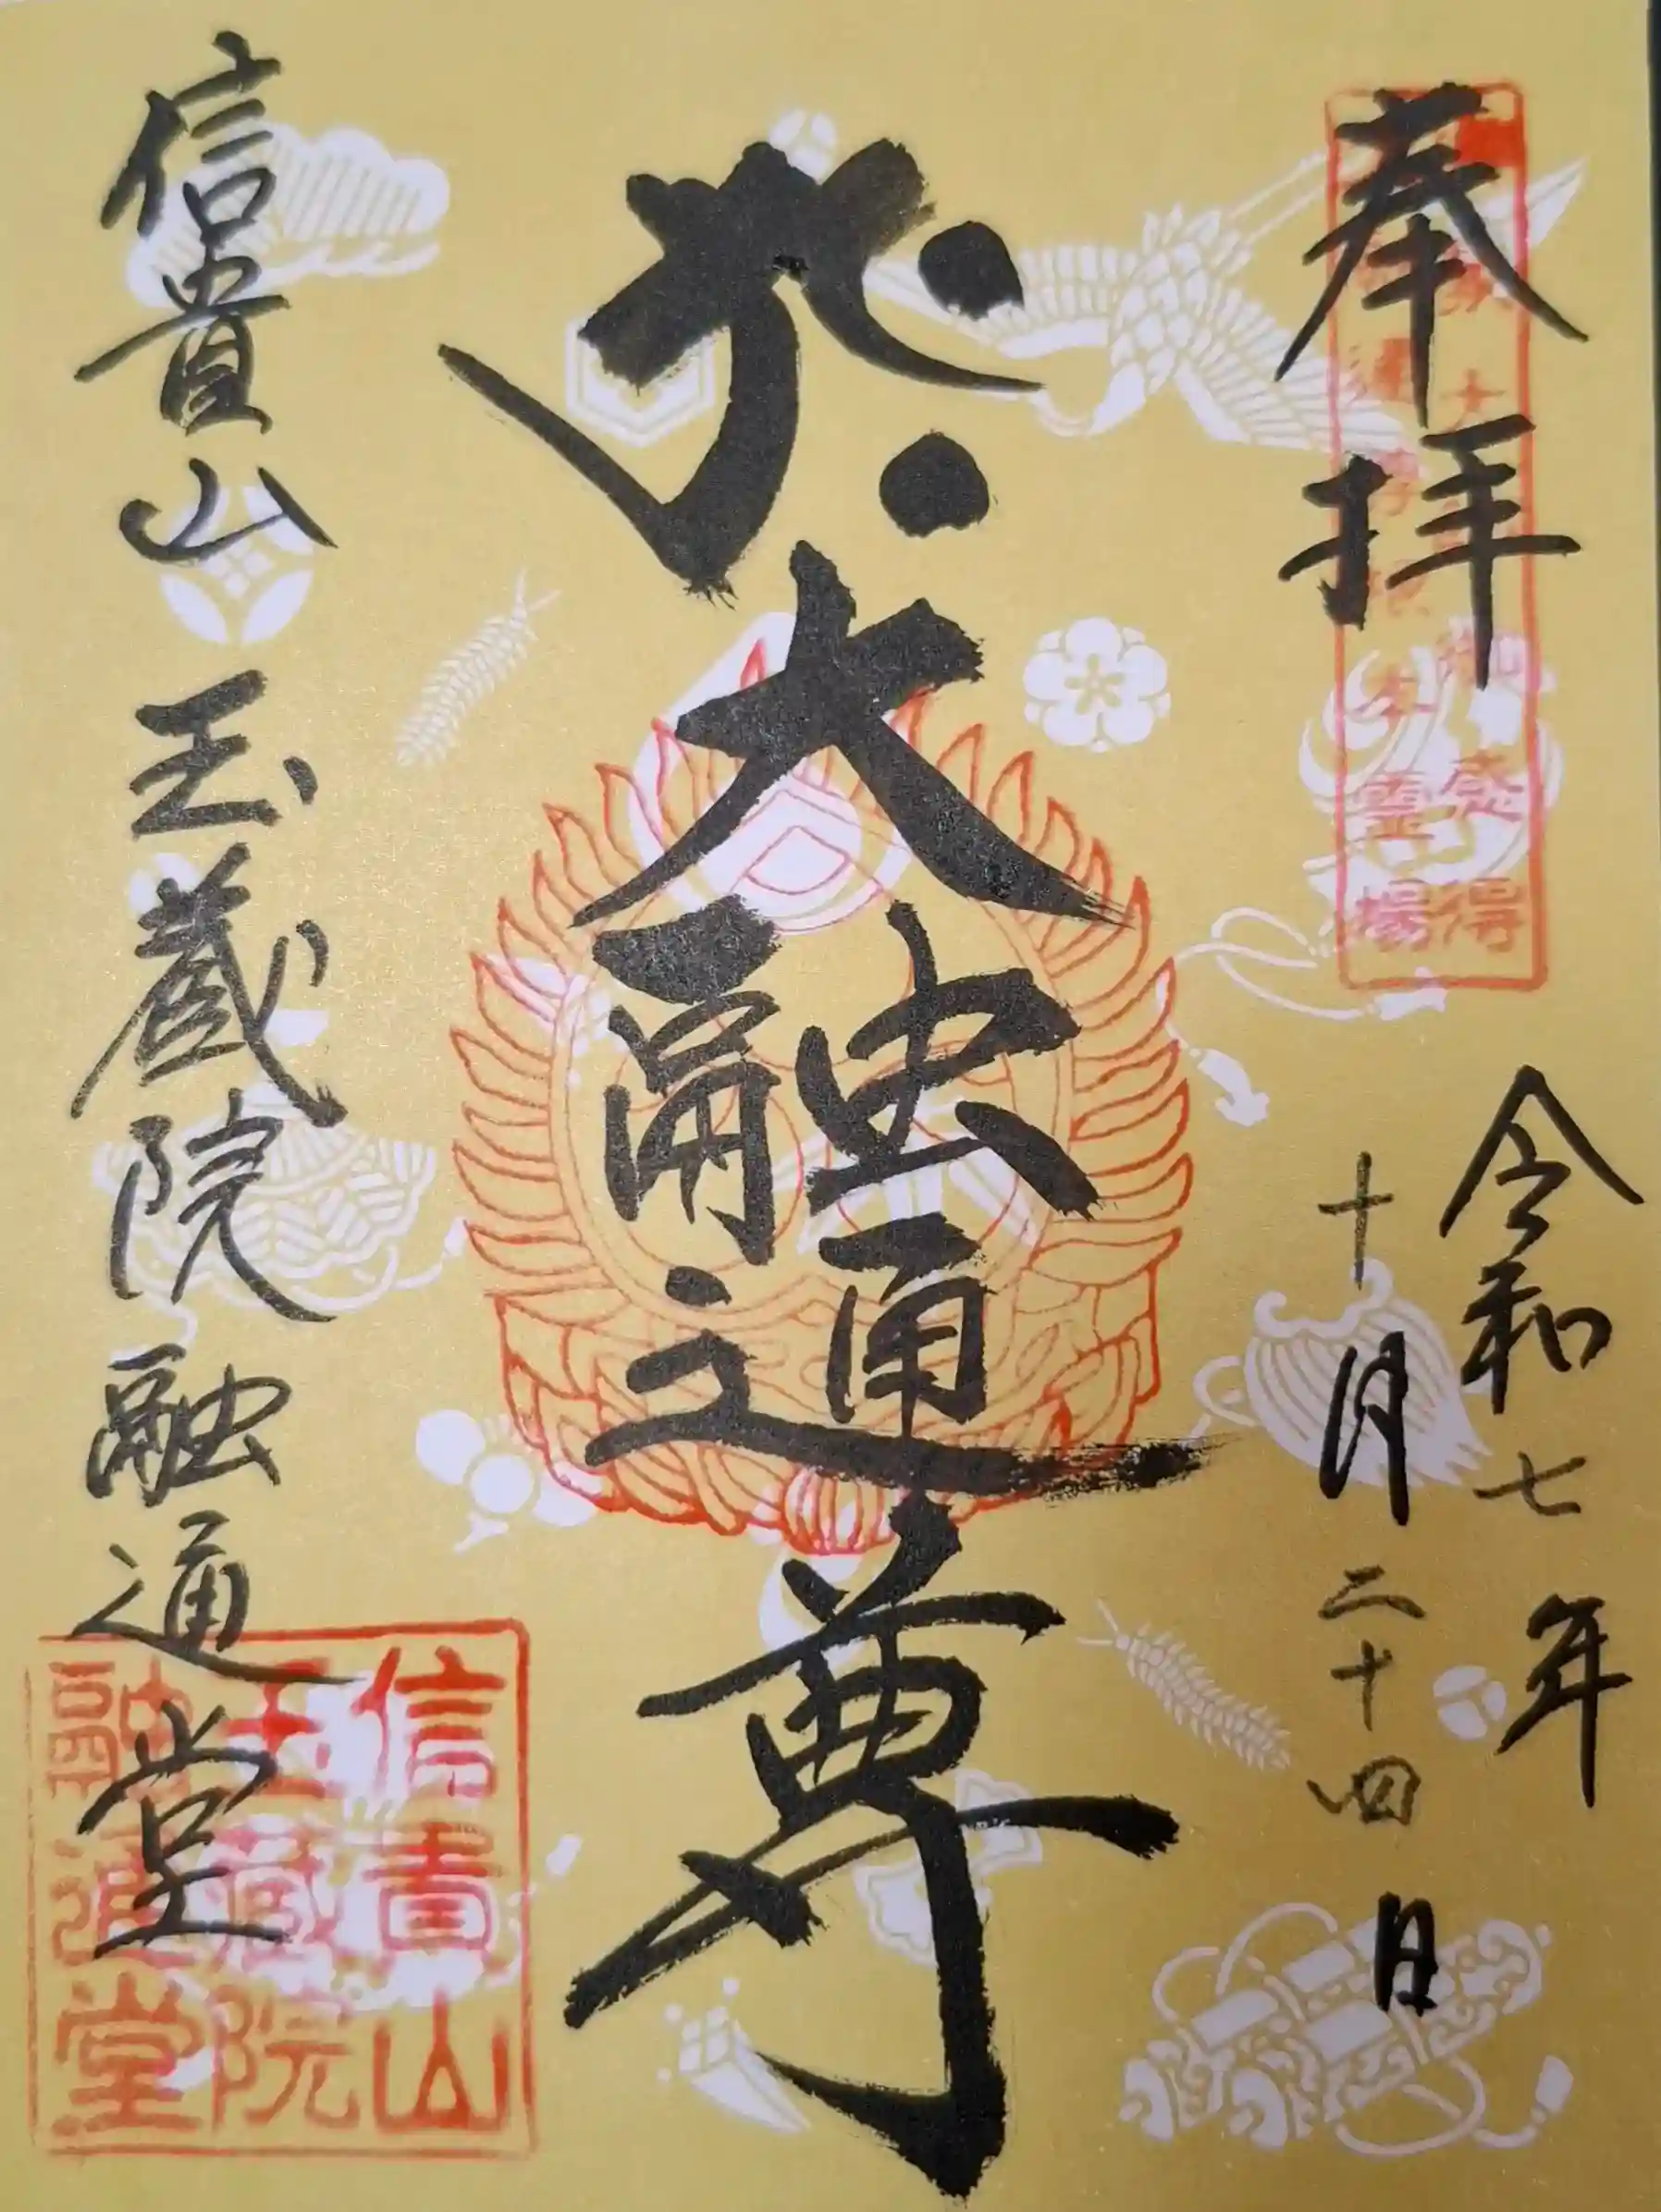 奉拝
令和七年
十月二十四日
大融通尊
信貴山 玉蔵院 融通堂
信貴山
玉蔵院
融通堂